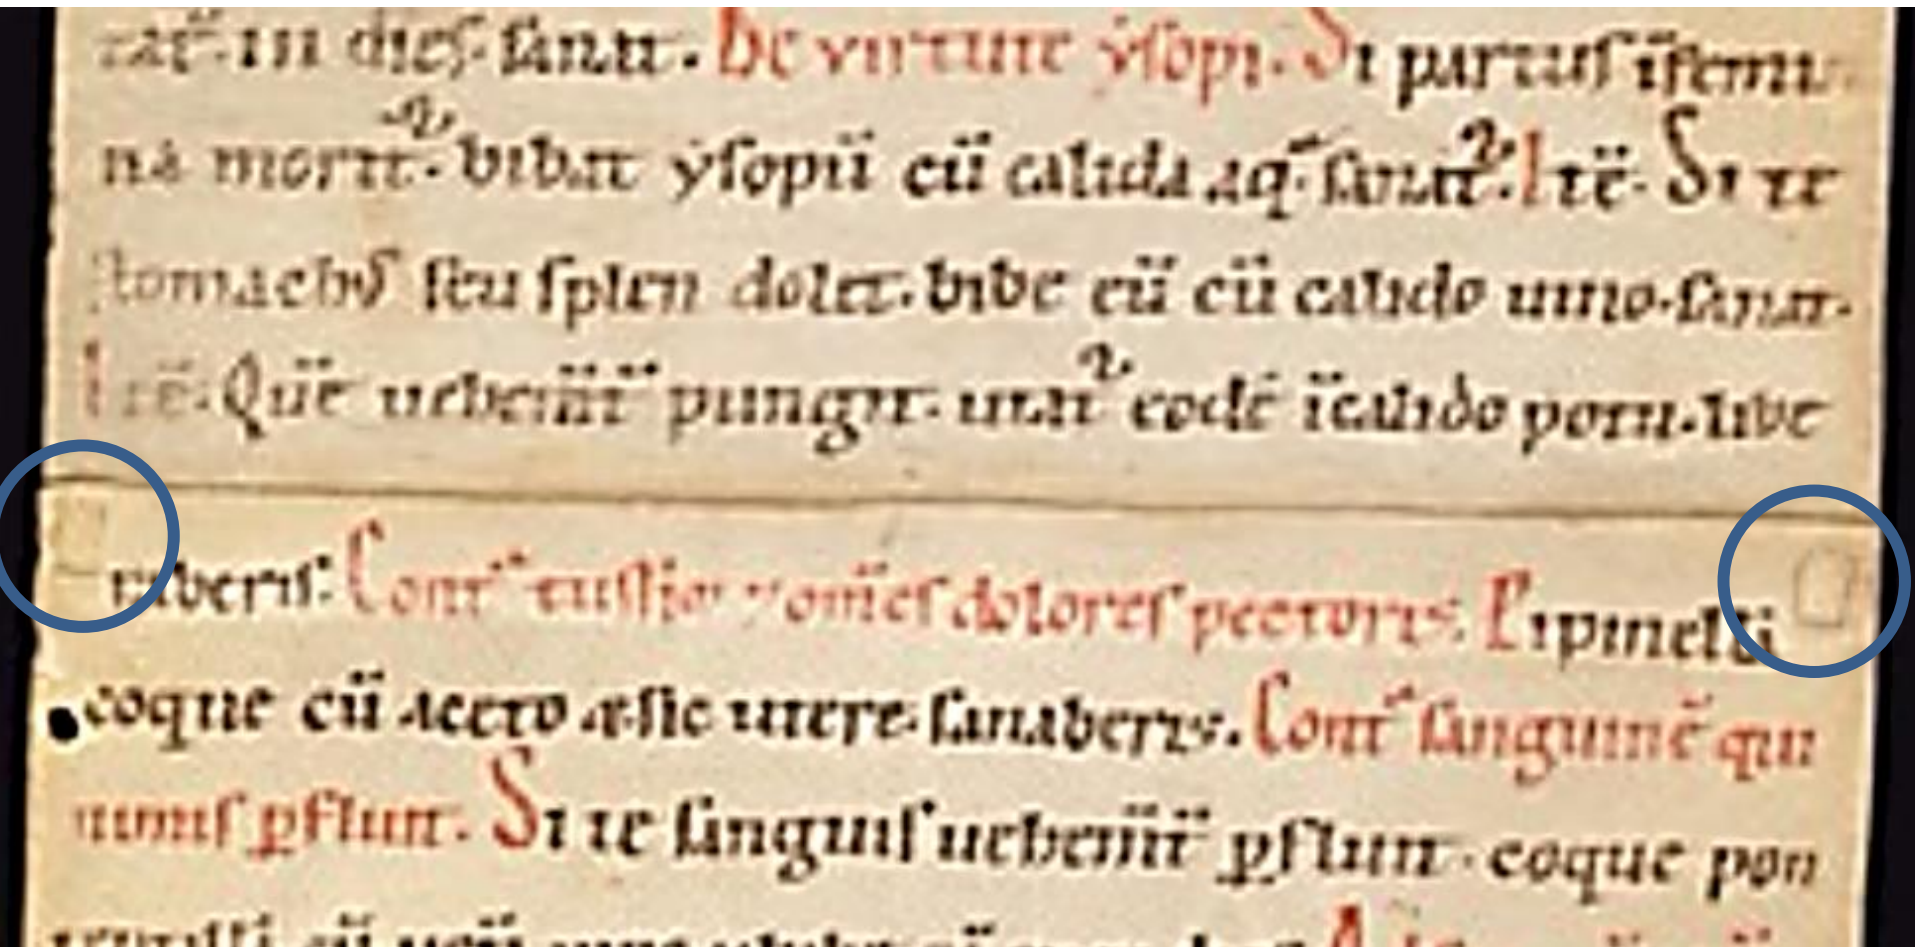 dies sanat. De virtute ẏsopi. Si partus ĩ femi
na mortu᷒. bibat ẏsopiũ cũ calida aq̃ sanat᷒. Itẽ. Si te
stomachus seu splen dolet. bibe eũ cũ calido uino. sanat.
Itẽ. Que uehem̃t pungit. utat᷒ eodẽ ĩ calido potu. libe
raberis. Cont̃ tussim omẽs dolores pectoris. Pipinelli
coque cũ aceto & sic utere. sanaberis. Cont̃ sanguinẽ qui
nimis ꝑfluit. Si te sanguis uehem̃t ꝑfluit. coque pon